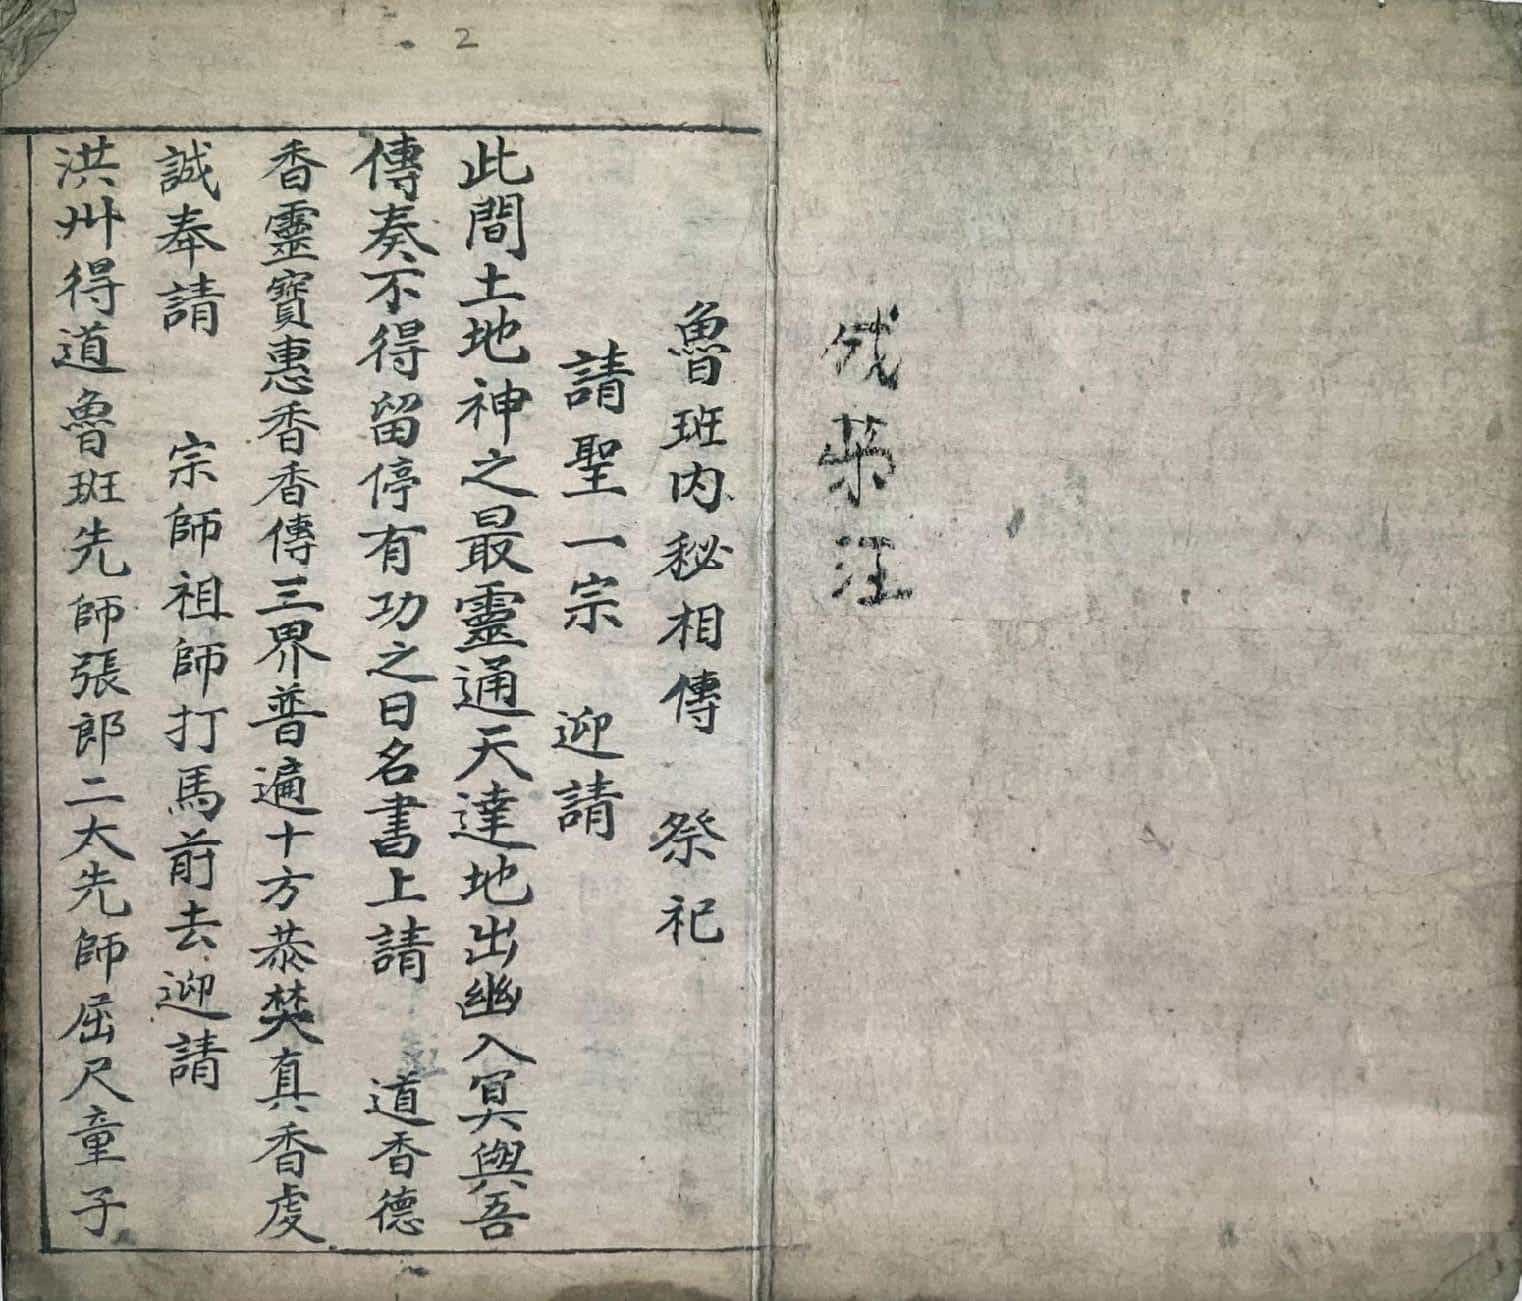 魯班內秘相傳 祭祀
請聖一宗 迎請
此間土地神之最靈通天達地出幽入冥與吾
傳奏不得留停有功之日名書上請 道香德
香靈寶惠香香傳三界普遍十方恭焚真香虔
誠奉請 宗師祖師打馬前去迎請
洪州得道魯班先師張郎二大先師屈尺童子
2